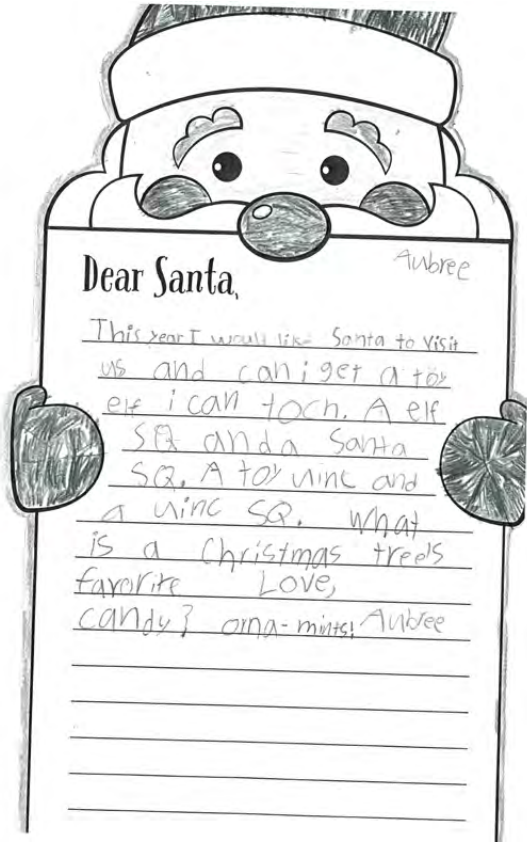 Aubree
Dear Santa,
This year I would like Santa to visit
us and can i get a toy
elf i can toch. A elf
SQ and a Santa
SQ. A toy uinc and
a uinc SQ. What
is a Christmas tree's
favorite Love,
candy? orna-mints! Aubree